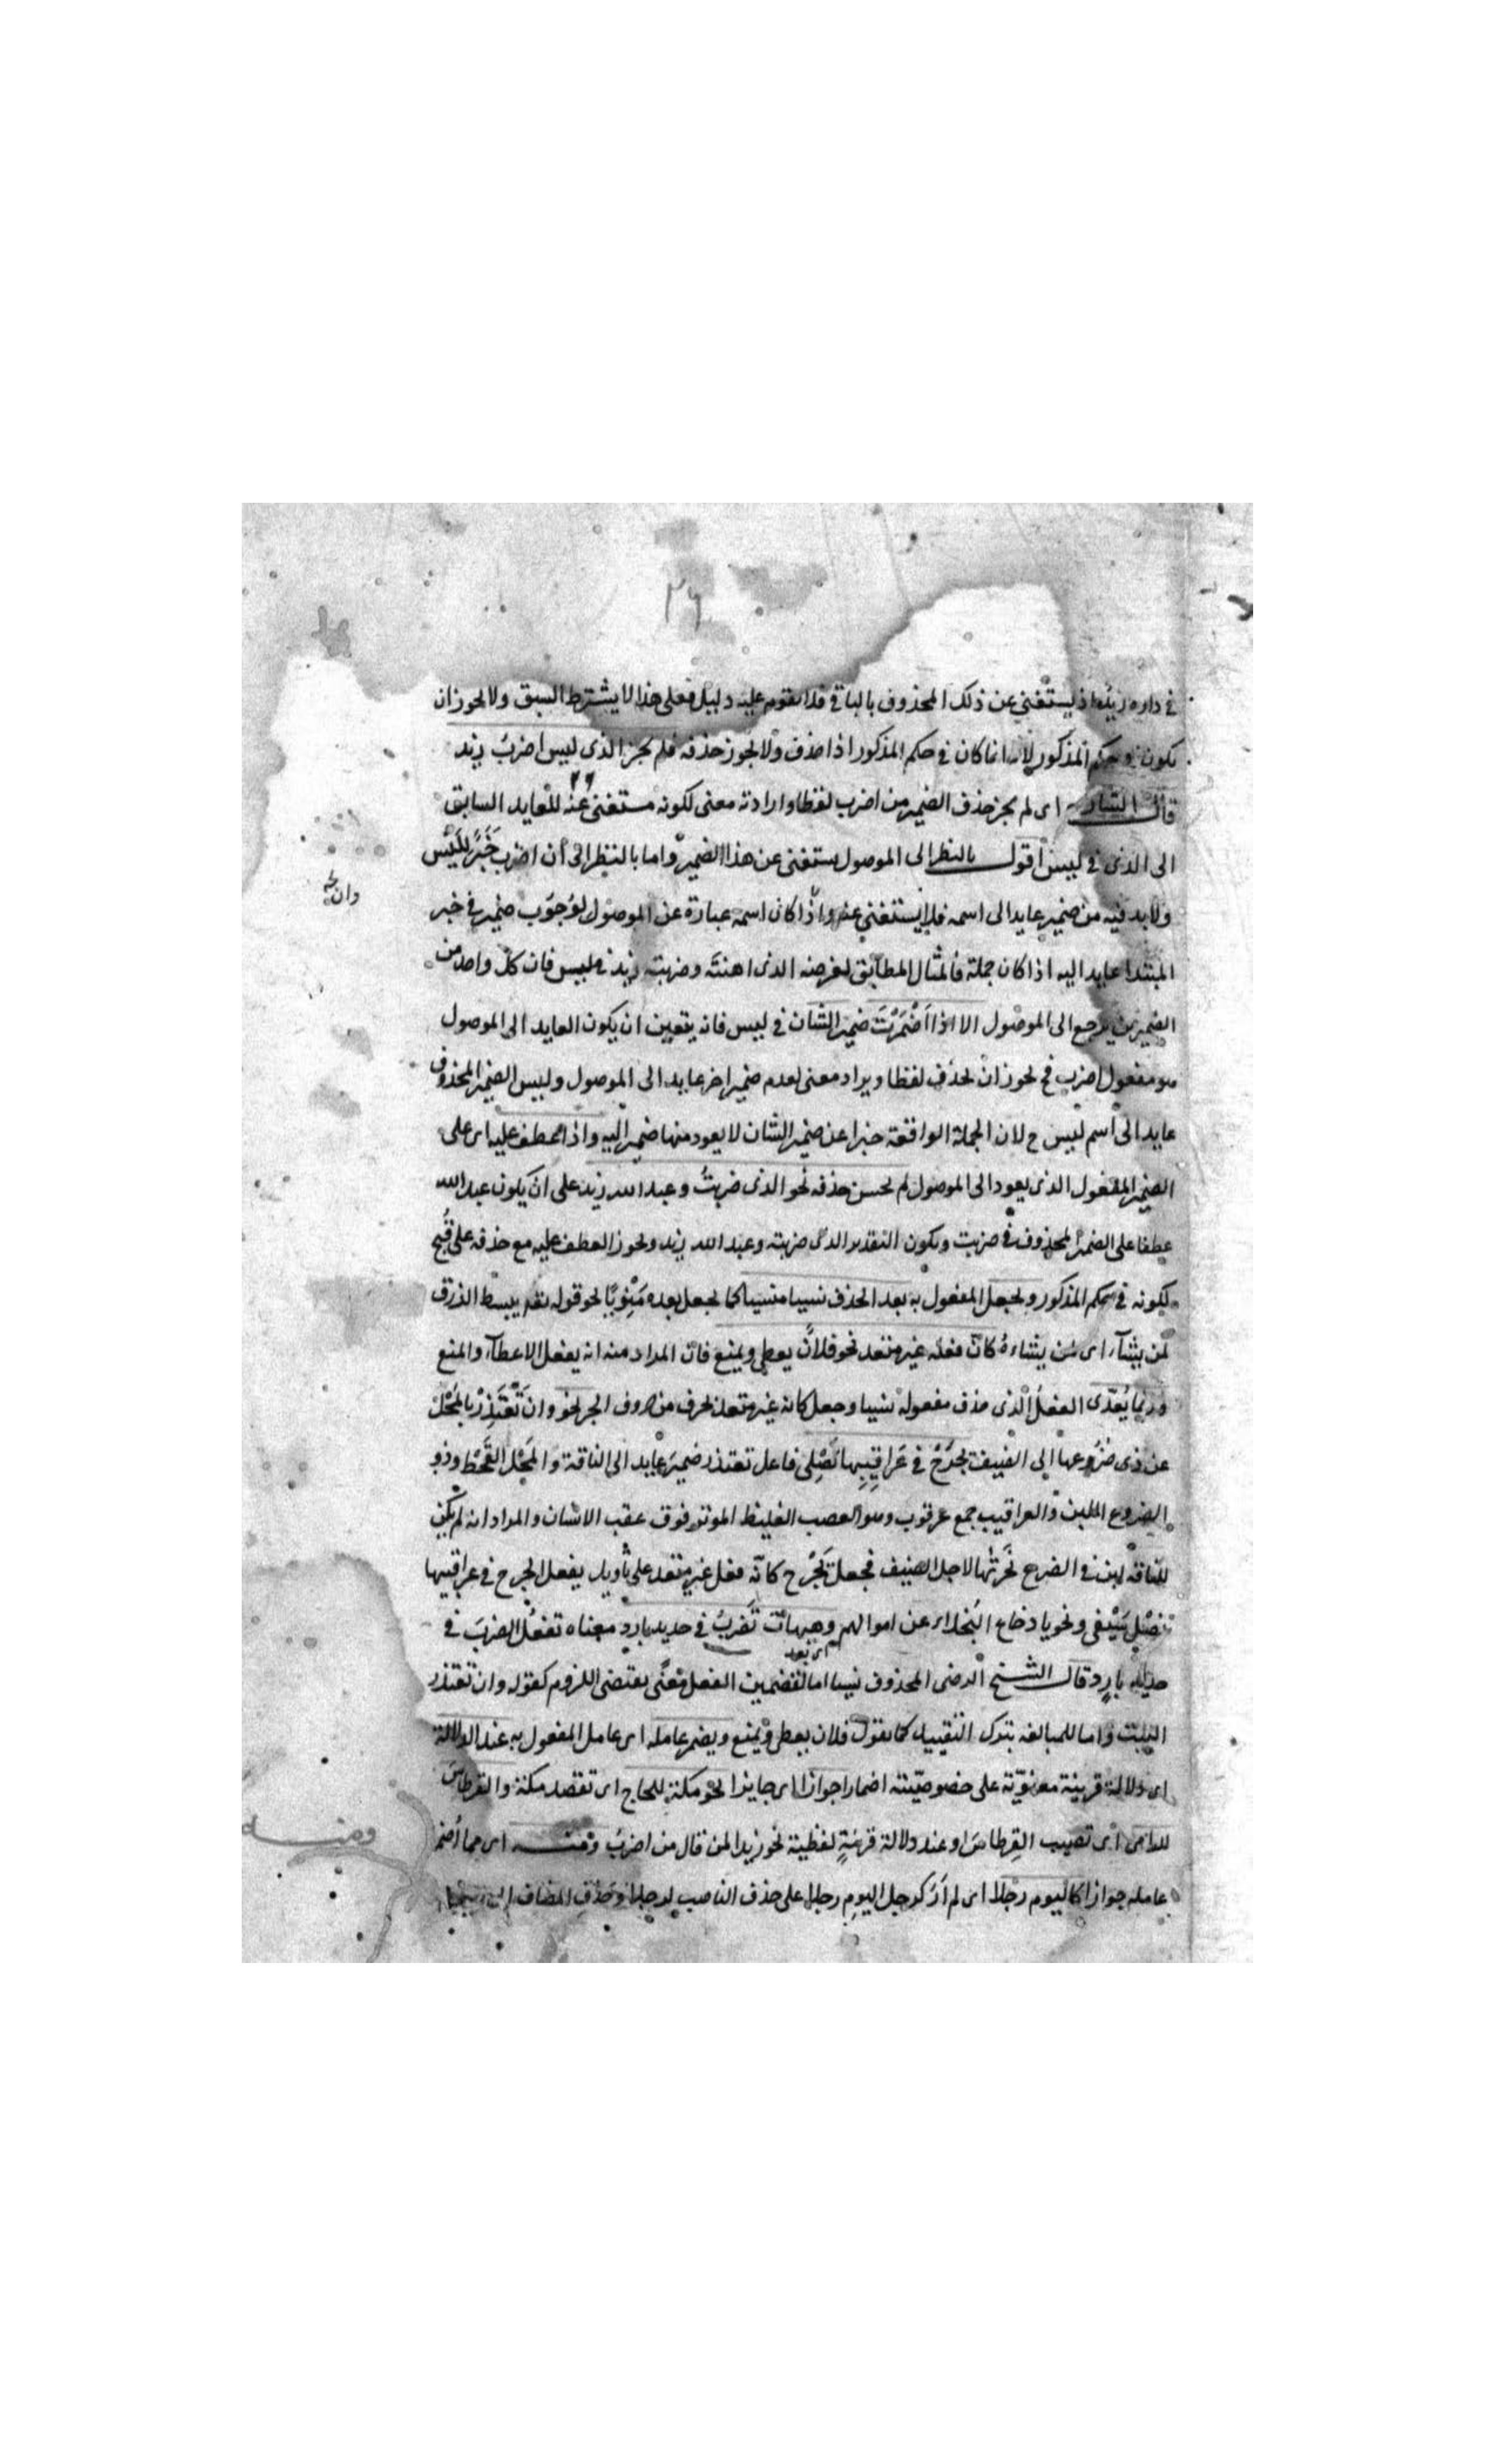 ٢٦
في داره زيد اذ يستغني عن ذلك المحذوف بالباقي فلا يقوم عليه دليل فعلى هذا لا يشترط السبق ولا يجوز ان
يكون في حكم المذكور لانه انما كان في حكم المذكور اذا حذف ولا يجوز حذفه فلم يجز الذى ليس اضرب زيد
قال الشارح اى لم يجز حذف الضمير من اضرب لفظا وارادته معنى لكونه مستغنى عنه للعايد السابق
الى الذى في ليس اقول بالنظر الى الموصول يستغنى عن هذا الضمير واما بالنظر الى أن اضرب خَبَرٌ لِلَيْس
ولابد فيه من ضمير عايد الى اسمه فلا يستغنى عنه واذا كان اسمه عبارة عن الموصول لوُجوُب ضمير في خبر
المبتدا عايد اليه اذا كان جملة فالمثال المطابق لغرضه الذى اهنتَه وضربته زيد فليس فان كل واحد من
الضميرين يرجع الى الموصول الا اذا اَضْمَرْتَ ضمير الشان في ليس فانه يتعين ان يكون العايد الى الموصول
هو مفعول اضرب فح يجوز ان يحذف لفظا ويراد معنى لعدم ضمير اخر عايد الى الموصول وليس الضمير المحذوف
عايد الى اسم ليس ح لان الجملة الواقعة خبرا عن ضمير الشان لا يعود منها ضمير اليه واذا عطف عليه اى على
الضمير المفعول الذى يعود الى الموصول لم يحسن حذفه نحو الذى ضربتُ وعبد الله زيد على ان يكون عبد الله
عطفا على الضمير المحذوف في ضربت ويكون التقدير الذى ضربته وعبد الله زيد ويجوز العطف عليه مع حذفه على قُبحٍ
لكونه في حكم المذكور ويجعل المفعول به بعد الحذف نسيا منسيا كما يجعل بعده مَنْوِيًا نحو قوله تعم يبسط الرزق
لمن يشآء اى من يشاءهُ كانّ فعله غير متعد نحو فلانٌ يعطى ويمنع فان المراد منه انه يفعل الاعطآء والمنع
وربما يُعدّى الفعل الذى حذف مفعوله نسيا وجعل كانه غير متعد بحرف من حروف الجر نحو وان تَعْتَذِرْ بالمَحْلِ
عن ذى ضروعها الى الضيف يَجْرَحْ في عَراقِيبِها نَصْلِى فاعل تعتذر ضمير عايد الى الناقة والمَحْل القَحْط وذو
الضروع اللبن والعراقيب جمع عرقوب وهو العصب الغليظ الموتر فوق عقب الانسان والمراد انه لم يكن
للناقة لبن في الضرع نَحَرتُها لاجل الضيف فجعل يَجْرَح كانّه فعل غير متعد على تأويل يفعل الجرح في عراقيبها
نَصْلِ سَيْفى ونحو يا دخاع البخلاء عن اموالهم وهيهاتَ تَضربُ في حديد بارد معناه تفعُل الضربَ في
اى بعد
حديد باردٍ وقال الشيخ الرضى المحذوف نسيا اما لتضمين الفعل معنًى يقتضى اللزوم كقوله وان تعتذر
البيت واما للمبالغه بترك التقييد كما تقول فلان يعطى ويمنع ويضمر عامله اى عامل المفعول به عند الدلالة
اى دلالة قرينة معنويّة على خصوصيّته اضمارا جوازا اى جايزا نحو مكة للحاج اى تقصد مكة والقرطاس
للرامى اى تصيب القِرطاسَ او عند دلالة قرينةٍ لفظية نحو زيدا لمن قال من اضربُ ومنه اى مما أضمر
عامله جوازا كاليوم رجلا اى لم أرَ كرجل اليومِ رجلا على حذف الناصب لرجلا وحَذْفِ المضاف
ومنه